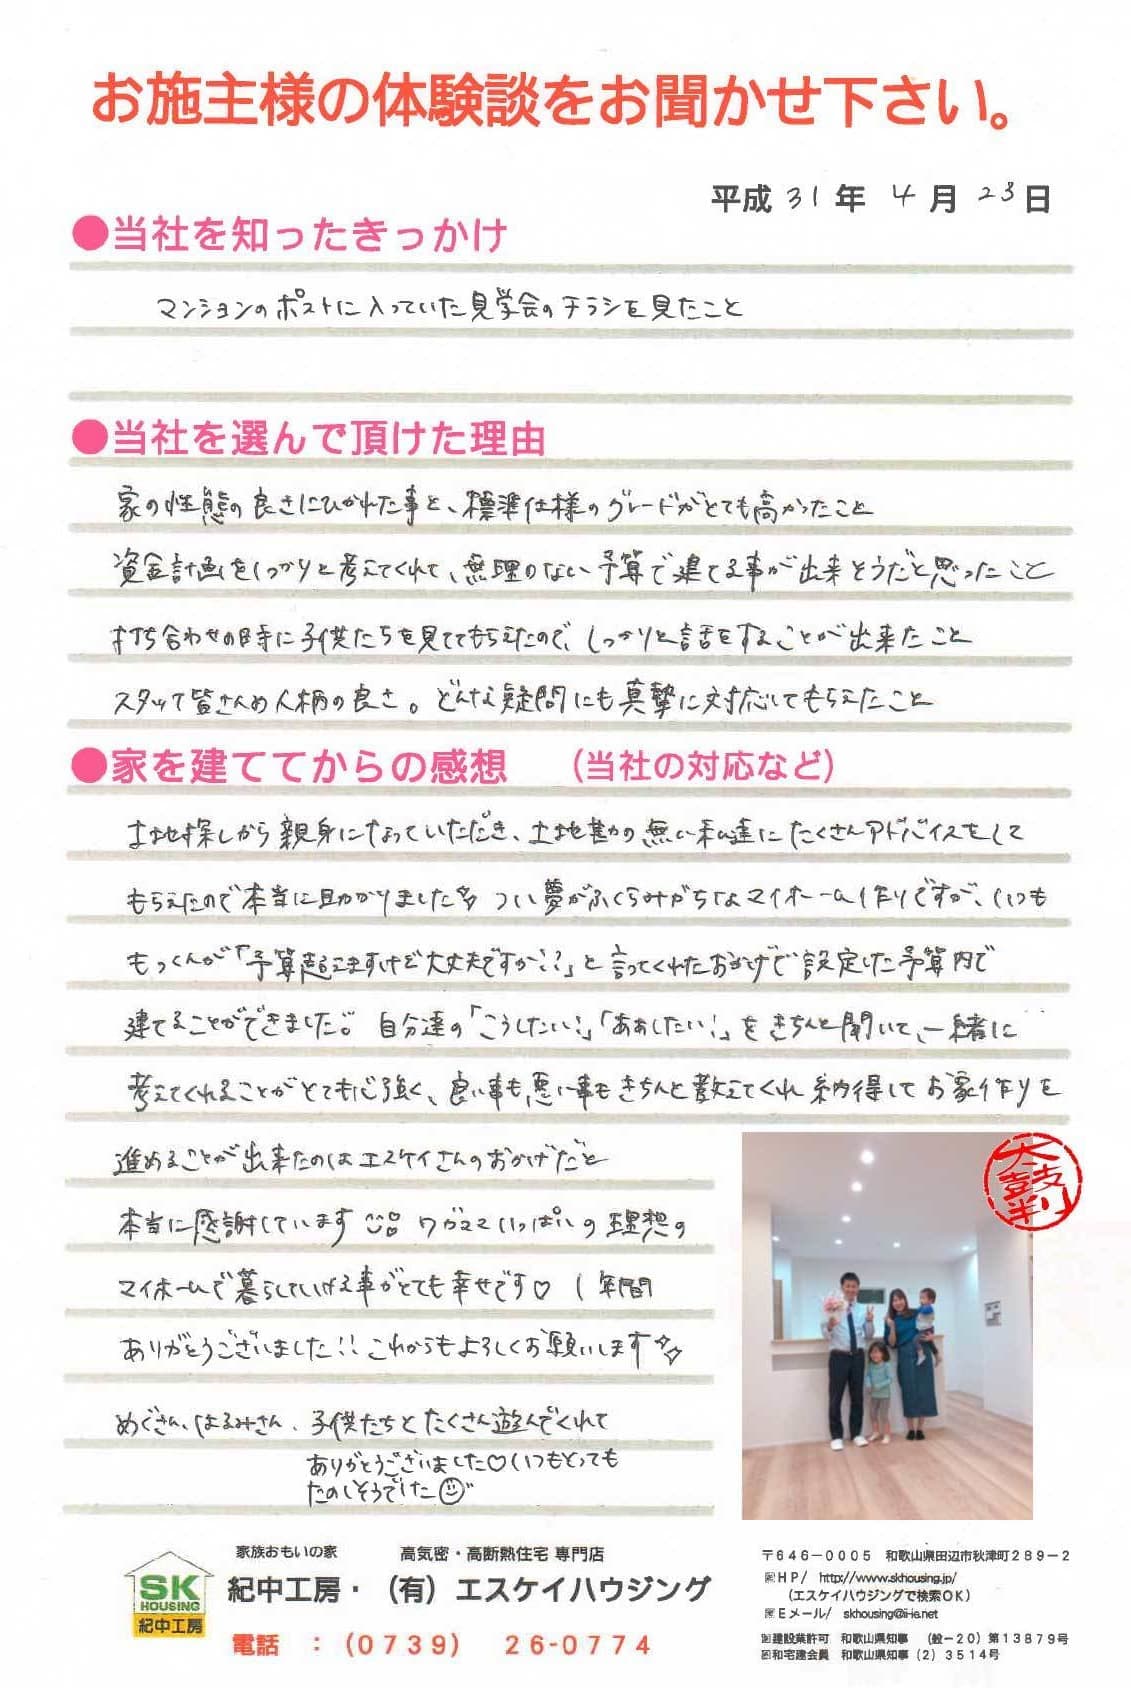 お施主様の体験談をお聞かせ下さい。
平成 31年 4月 23日
●当社を知ったきっかけ
マンションのポストに入っていた見学会のチラシを見たこと
●当社を選んで頂けた理由
家の性態の良さにひかれた事と、標準仕様のグレードがとても高かったこと
資金計画をしっかりと考えてくれて、無理のない予算で建てる事が出来そうだと思ったこと
打ち合わせの時に子供たちを見ててもらえたので、しっかりと話をすることが出来たこと
スタッフ皆さんの人柄の良さ。どんな疑問にも真摯に対応してもらえたこと
●家を建ててからの感想 (当社の対応など)
土地探しから親身になっていただき、土地勘の無い私達にたくさんアドバイスをして
もらえたので本当に助かりました☆ つい夢がふくらみがちなマイホーム作りですが、いつも
もっくんが「予算超えますけど大丈夫ですか??」と言ってくれたおかげで設定した予算内で
建てることができました。自分達の「こうしたい!」「ああしたい!」をきちんと聞いて、一緒に
考えてくれることがとても心強く、良い事も悪い事もきちんと教えてくれ納得してお家作りを
進めることが出来たのはエスケイさんのおかげだと
本当に感謝しています ワガママいっぱいの理想の
マイホームで暮らしていける事がとても幸せです♡ 1年間
ありがとうございました!!これからもよろしくお願いします☆
めぐさん、はるみさん、子供たちとたくさん遊んでくれて
ありがとうございました♡いつもとっても
たのしそうでした☺
太鼓判
SK
HOUSING
紀中工房
家族おもいの家 高気密・高断熱住宅 専門店
紀中工房・(有)エスケイハウジング
電話 : (0739) 26-0774
〒646-0005 和歌山県田辺市秋津町289-2
HP/ http://www.skhousing.jp/
(エスケイハウジングで検索OK)
Eメール/ skhousing@i-ie.net
建設業許可 和歌山県知事 (般-20)第13879号
和宅建会員 和歌山県知事(2)3514号